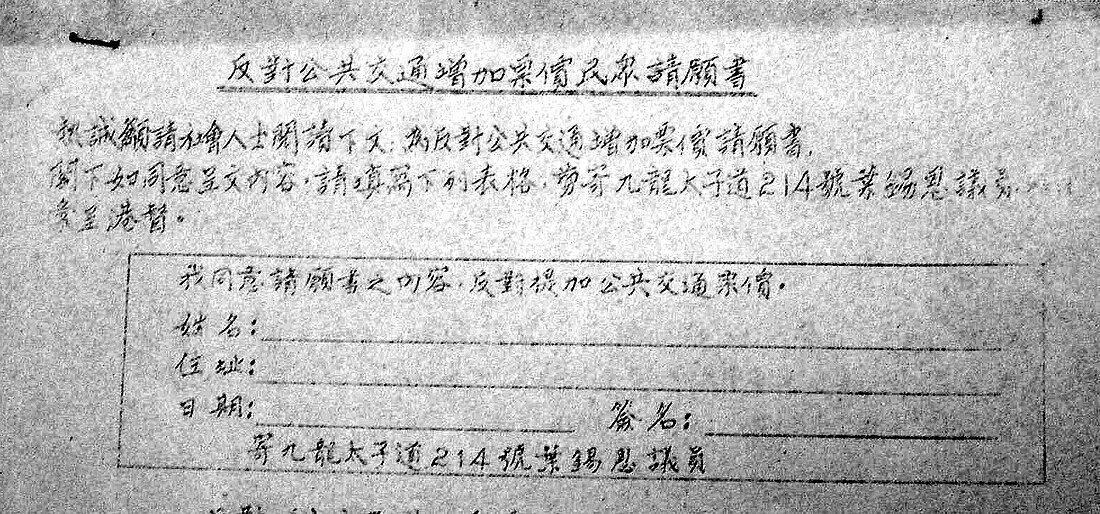 反對公共交通增加票價民眾請願書
熱誠籲請社會人士閱讀下文，為反對公共交通增加票價請願書，
閣下如同意呈文內容，請填寫下列表格，剪寄九龍太子道214號葉錫恩議員
彙呈港督。
我同意請願書之內容，反對提加公共交通票價。
姓名：
住址：
日期： 簽名：
寄九龍太子道214號葉錫恩議員